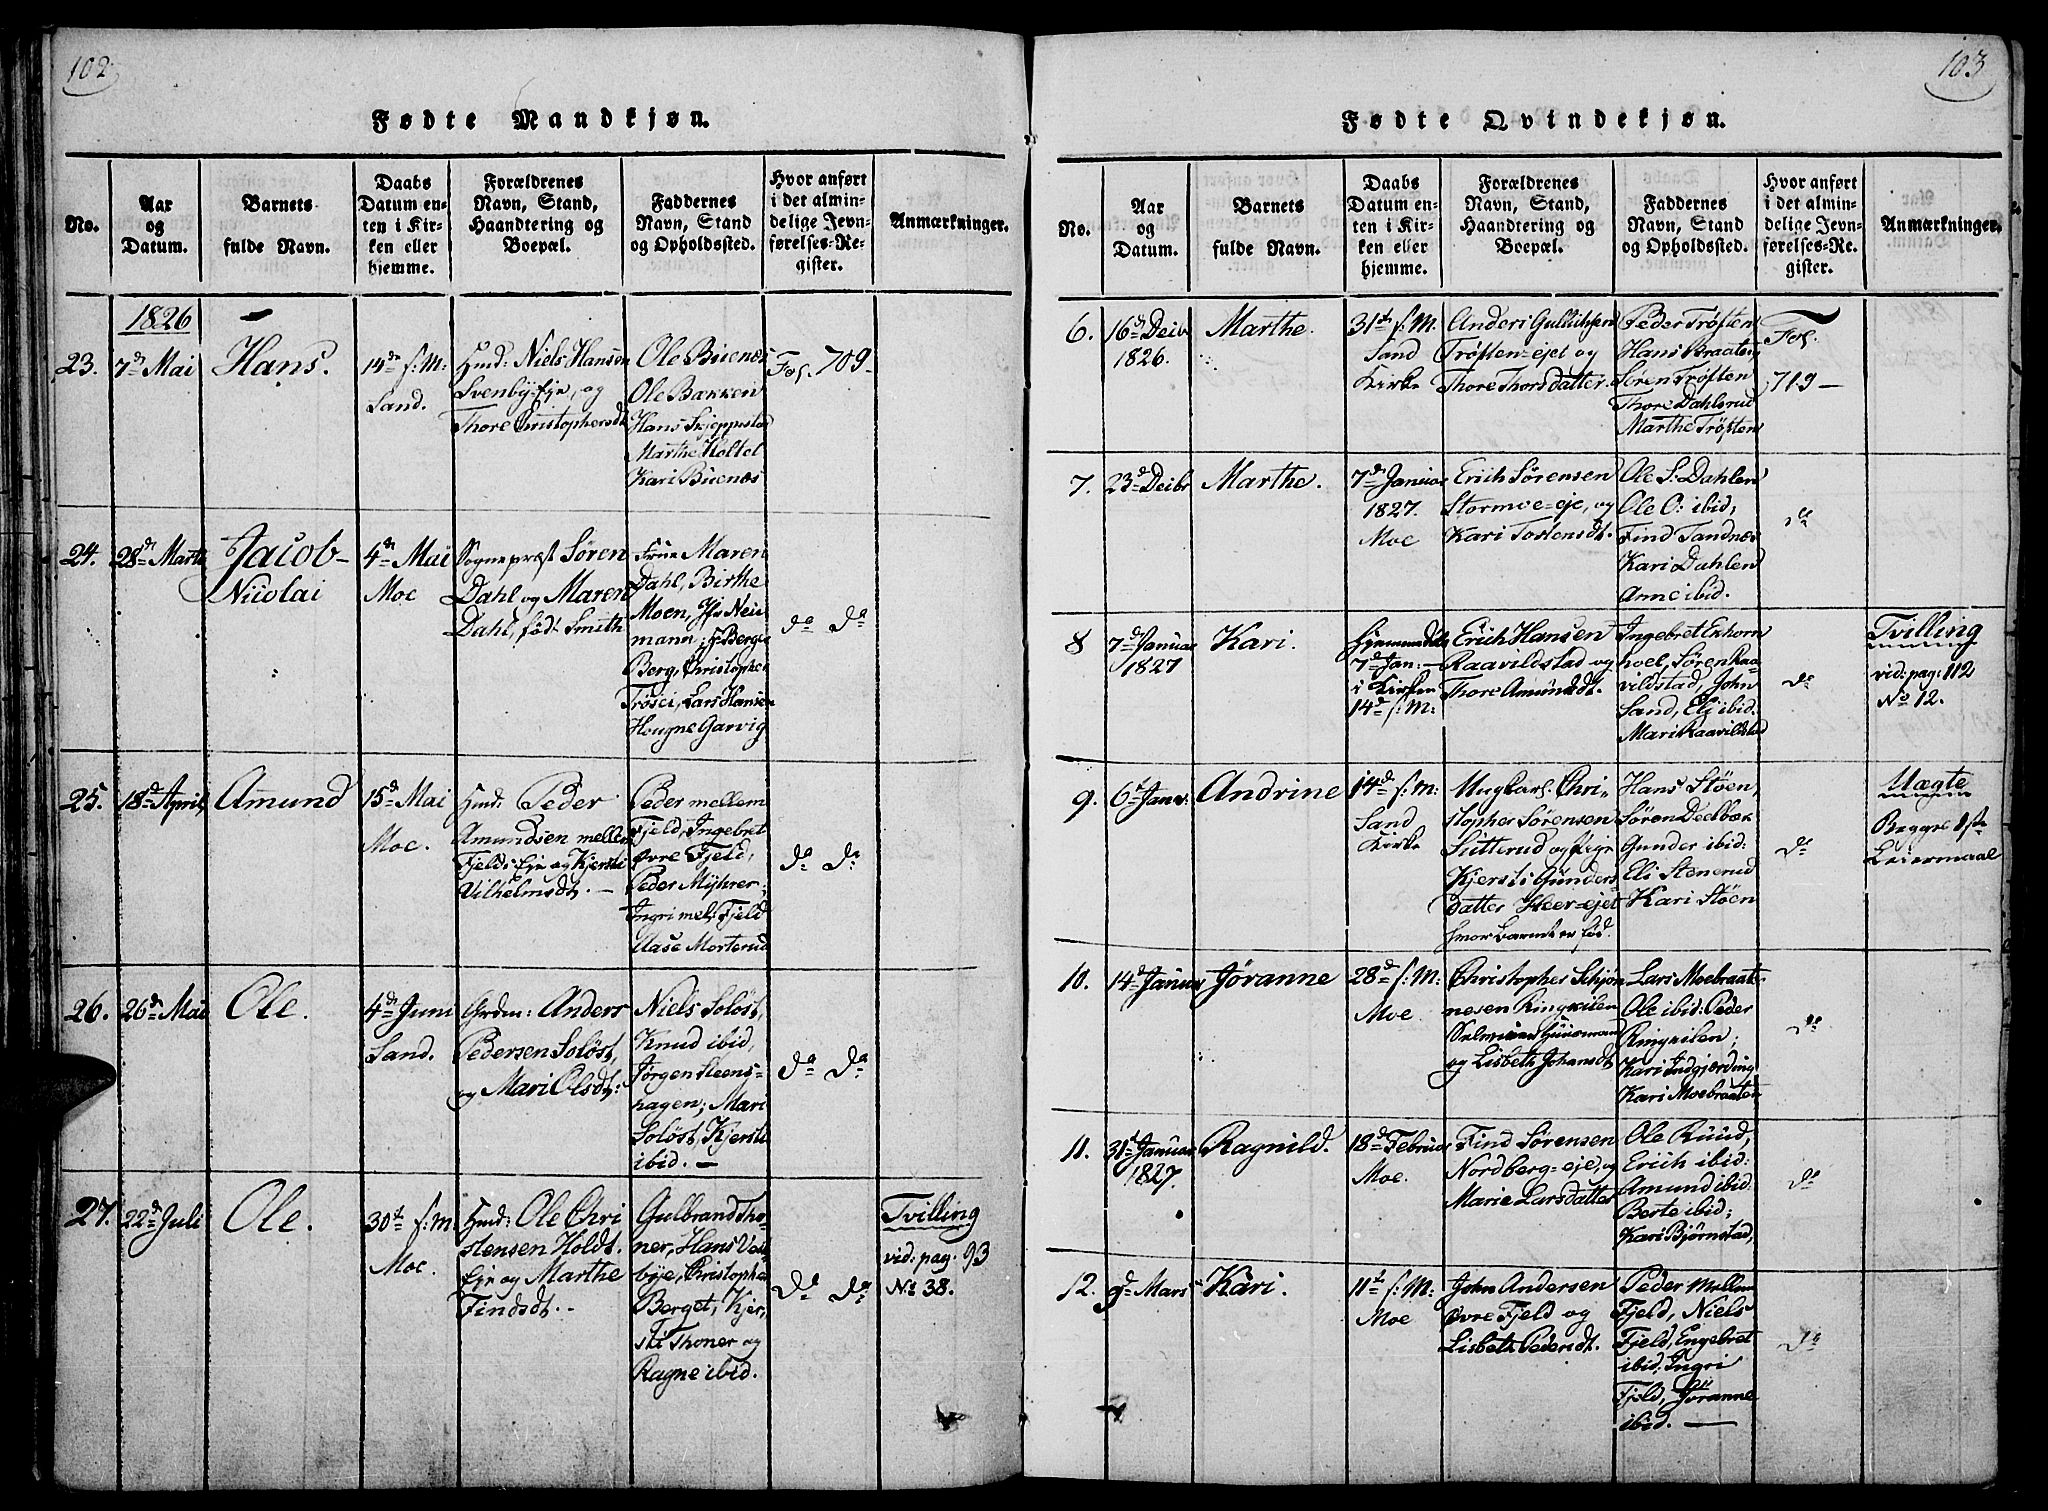 102
Fødte Mandkjøn.
No.
Aar
og
Datum.
Barnets
fulde Navn.
Daabs
Datum en-
ten i Kir-
ken eller
hjemme.
Forældrenes
Navn, Stand,
Haandtering og
Boepæl.
Faddernes
Navn, Stand
og Opholdssted.
Hvor anført
i det almin-
delige Jevn-
førelses-Re-
gister.
Anmærkninger.
1826
23.
7de Mai
Hans.
14de f: M:
Sand.
Hmd: Niels Hansen
Svenby-Eje, og
Thore Christophersdt
Ole Buenæs
Ole Bakken
Hans Skjeppstad
Marthe Holtet
Kari Buenæs
Fol. 709-
24.
28de Marts
Jacob-
Nicolai
4de Mai
Moe
Sognepræst Søren
Dahl og Maren
Dahl, fød Smith
Frue Maren
Dahl, Birthe
Moen, Jfr Nei
mann; Hr Berg
Berg, Christopher
Trøsei, Lars Hansen
Hougne Garvig
do do
25.
18de April,
Amund
15de Mai
Moe.
Hmd: Peder
Amundsen mellem
Fjeld: Eje og Kjersti
Vilhelmsdt. —
Peder mellem
Fjeld, Ingebret
øvre Fjeld,
Peder Myhrer;
Ingri mel: Fjeld
Aase Morterud
do do
26.
26de Mai
Ole.
4de Juni
Sand.
Grdm: Anders
Pedersen Soløst,
og Mari Olsdt:
Niels Soløst,
Knud ibid,
Jørgen Steens-
hagen; Mari
Soløst, Kjersti
ibid. —
do do
27.
22de Juli
Ole.
30te f: M
Moe.
Hmd: Ole Chri
stensen Holdt.
Eje og Marthe
Findsdt. -
Gulbrand Tho-
ner, Hans Vest
bye, Christopher
Berget, Kjer,
sti Thoner og
Ragne ibid.
do do
Tvilling
vid: pag. 93
No 38.
103
Fødte Qvindekjøn.
No.
Aar
og
Datum.
Barnets
fulde Navn.
Daabs
Datum en-
ten i Kir-
ken eller
hjemme.
Forældrenes
Navn, Stand,
Haandtering og
Boepæl.
Faddernes
Navn, Stand
og Opholdssted.
Hvor anført
i det almin-
delige Jevn-
førelses-Re-
gister.
Anmærkninger.
6.
16de Decbr
1826.
Marthe.
31te f: M.
Sand
Kirke
Anders Gulbrandsen
Trøften=ejet og
Thore Thorsdatter.
Peder Trøften
Hans Braaten
Søren Trøften
Thore Dahlsrud
Marthe Trøften
Fol.
719 —
7.
23de Decbr
Marthe.
7de Januar
1827.
Moe
Erich Sørensen
Stormoe=eje, og
Kari Tostensdt.
Ole S: Dahlen
Ole O: ibid,
Find Sandnæs
Kari Dahlen
Anne ibid.
do
8
7de Januar
1827
Kari.
Hjemmedøbt
7de Jan: —
i Kirken
14de f: M:
Erich Hansen
Raavildstad og
Thore Amundsdt.
Ingebret Ekorn
hoel, Søren Raa-
vildstad, John
Sand, Eli ibid:
Mari Raavildstad
do
Tvilling
vid: pag: 112
No 12.
9.
6te Janr.
Andrine
14de f: M:
Sand
Kirke
Ungkarl Chri-
stopher Sørensen
Sutterud og Pige
Kjersti Gunders
datter Heer=ejet
hvor Barnet er fød.
Hans Støen,
Søren Deelbæk
Gunder ibid:
Eli Stenerud
Kari Støen
do
Uægte
Begges 1ste
Leiermaal
10.
14de Januar
Jøranne
28de f: M:
Moe
Christopher Schjøn
nesen Ringkilen
Huusmand
og Lisbeth Johansdt
Lars Moebraat-
Ole ibid: Peder
Ringkilen;
Kari Indgjerding
Kari Moebraaten
do
11.
31te Januar
1827.
Ragnild.
18de Februar
Moe.
Find Sørensen
Nordberg=eje, og
Marie Larsdatter
Ole Ruud,
Erich ibid:
Amund ibid:
Berte ibid;
Kari Bjørnstad,
do
12.
9de Mars
Kari.
11te f: M:
Moe
John Andersen
Øvre Fjeld og
Lisbeth Pedersdt.
Peder Mellem
Fjeld, Niels
Fjeld, Engebret
ibid, Ingri
Fjeld, Jøranne
ibid. —
do